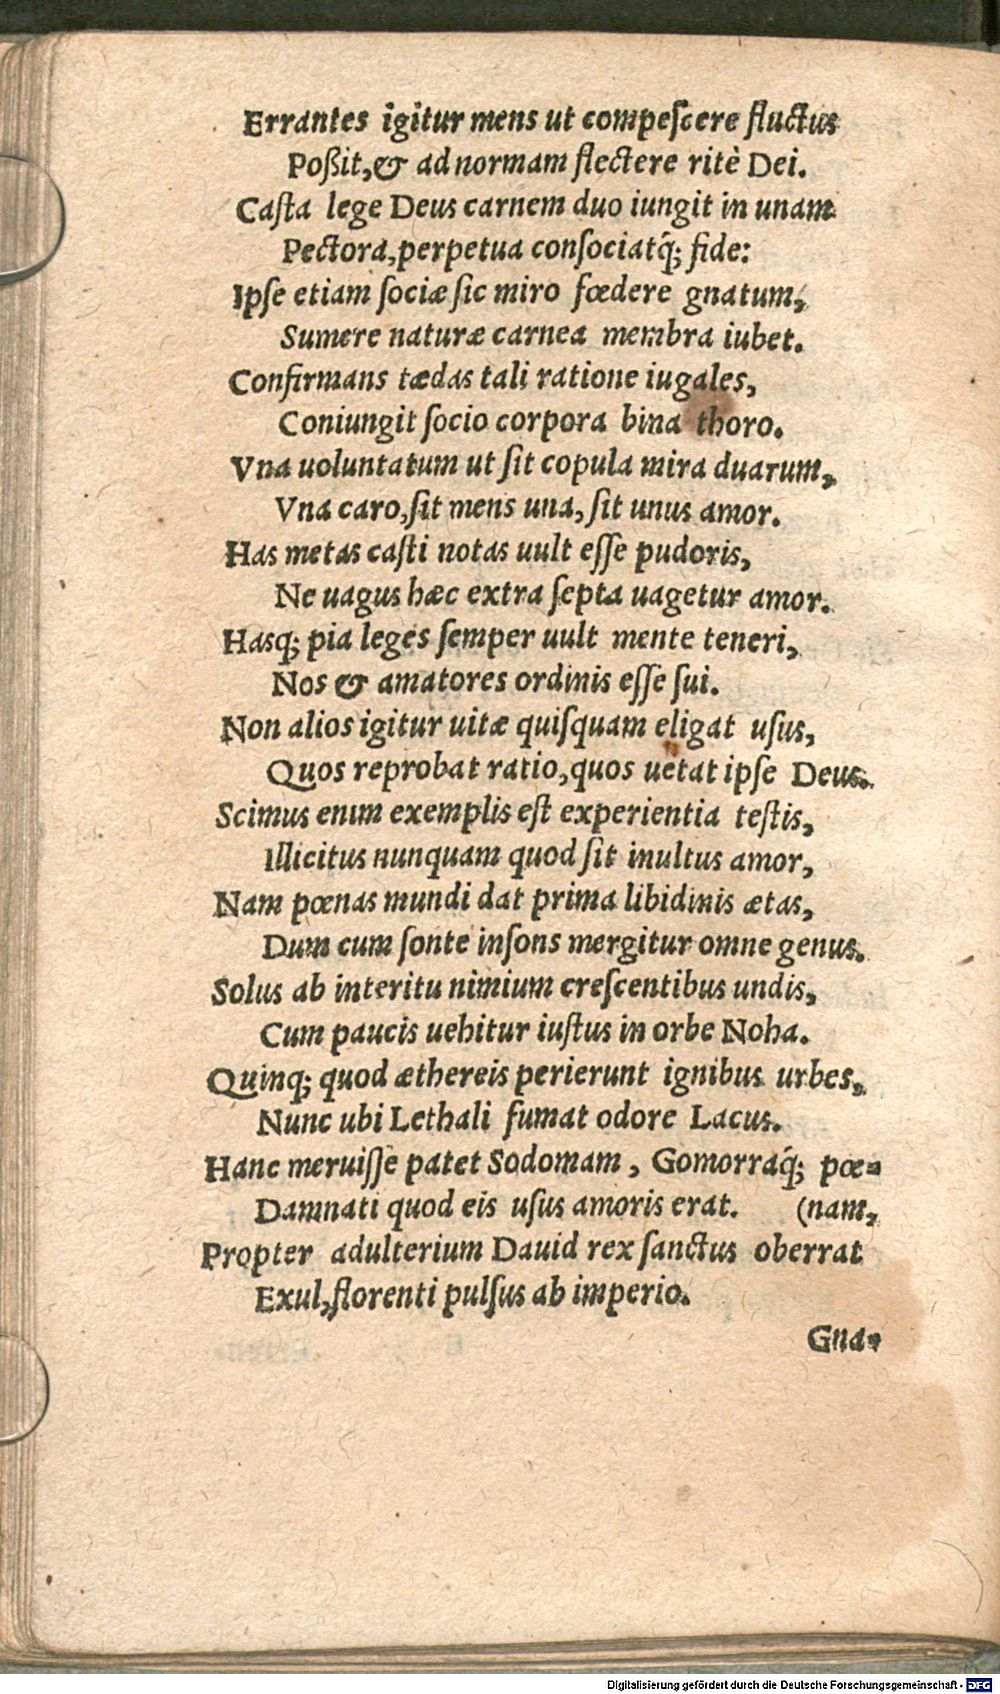 Errantes igitur mens ut compeſcere fluctus
Poßit,& ad normam flectere ritè Dei.
Caſta lege Deus carnem duo iungit in unam
Pectora,perpetua conſociatq́; fide:
Ipſe etiam ſociæ ſic miro fœdere gnatum,
Sumere naturæ carnea membra iubet.
Confirmans tædas tali ratione iugales,
Coniungit ſocio corpora bina thoro.
Vna uoluntatum ut ſit copula mira duarum,
Vna caro,ſit mens una, ſit unus amor.
Has metas caſti notas uult eſſe pudoris,
Ne uagus hæc extra ſepta uagetur amor.
Hasq; pia leges ſemper uult mente teneri,
Nos & amatores ordinis eſſe ſui.
Non alios igitur uitæ quiſquam eligat uſus,
Quos reprobat ratio,quos uetat ipſe Deus.
Scimus enim exemplis eſt experientia teſtis,
Illicitus nunquam quod ſit inultus amor,
Nam pœnas mundi dat prima libidinis ætas,
Dum cum ſonte inſons mergitur omne genus.
Solus ab interitu nimium creſcentibus undis,
Cum paucis uehitur iuſtus in orbe Noha.
Quinq; quod æthereis perierunt ignibus urbes,
Nunc ubi Lethali fumat odore Lacus.
Hanc meruiſſe patet Sodomam , Gomorraq́; pœ-
Damnati quod eis uſus amoris erat. (nam,
Propter adulterium Dauid rex ſanctus oberrat
Exul,florenti pulſus ab imperio.
Gna-
Digitalisierung gefördert durch die Deutsche Forschungsgemeinschaft - DFG